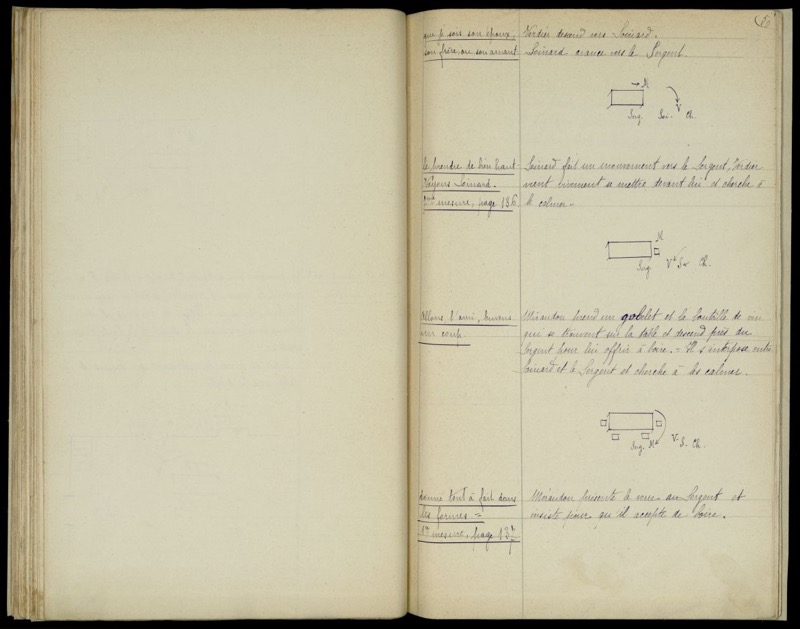 6
que je sois son époux,
son frère, ou son amant
Verdier descend vers Loinard.
Loinard avance vers le Sergent.
M
V
Serg. Loi. Ch.
le prendre de bien haut
Voyons Loinard.
mesure, page 136.
Loinard fait un mouvement vers le Sergent, Verdier
vient vivement se mettre devant lui et cherche à
le calmer.
M
Serg V Ch.
Allons l'ami, buvons
un coup.
Mérandon prend un gobelet et la bouteille de vin
qui se trouvent sur la table et descend près du
Sergent pour lui offrir à boire. = Il s'interpose entre
Loinard et le Sergent et cherche à les calmer.
Serg. M V. S. Ch.
donné tout à fait dans
les formes =
mesure, page 137
Mérandon présente le verre au Sergent et
insiste pour qu'il accepte de boire.